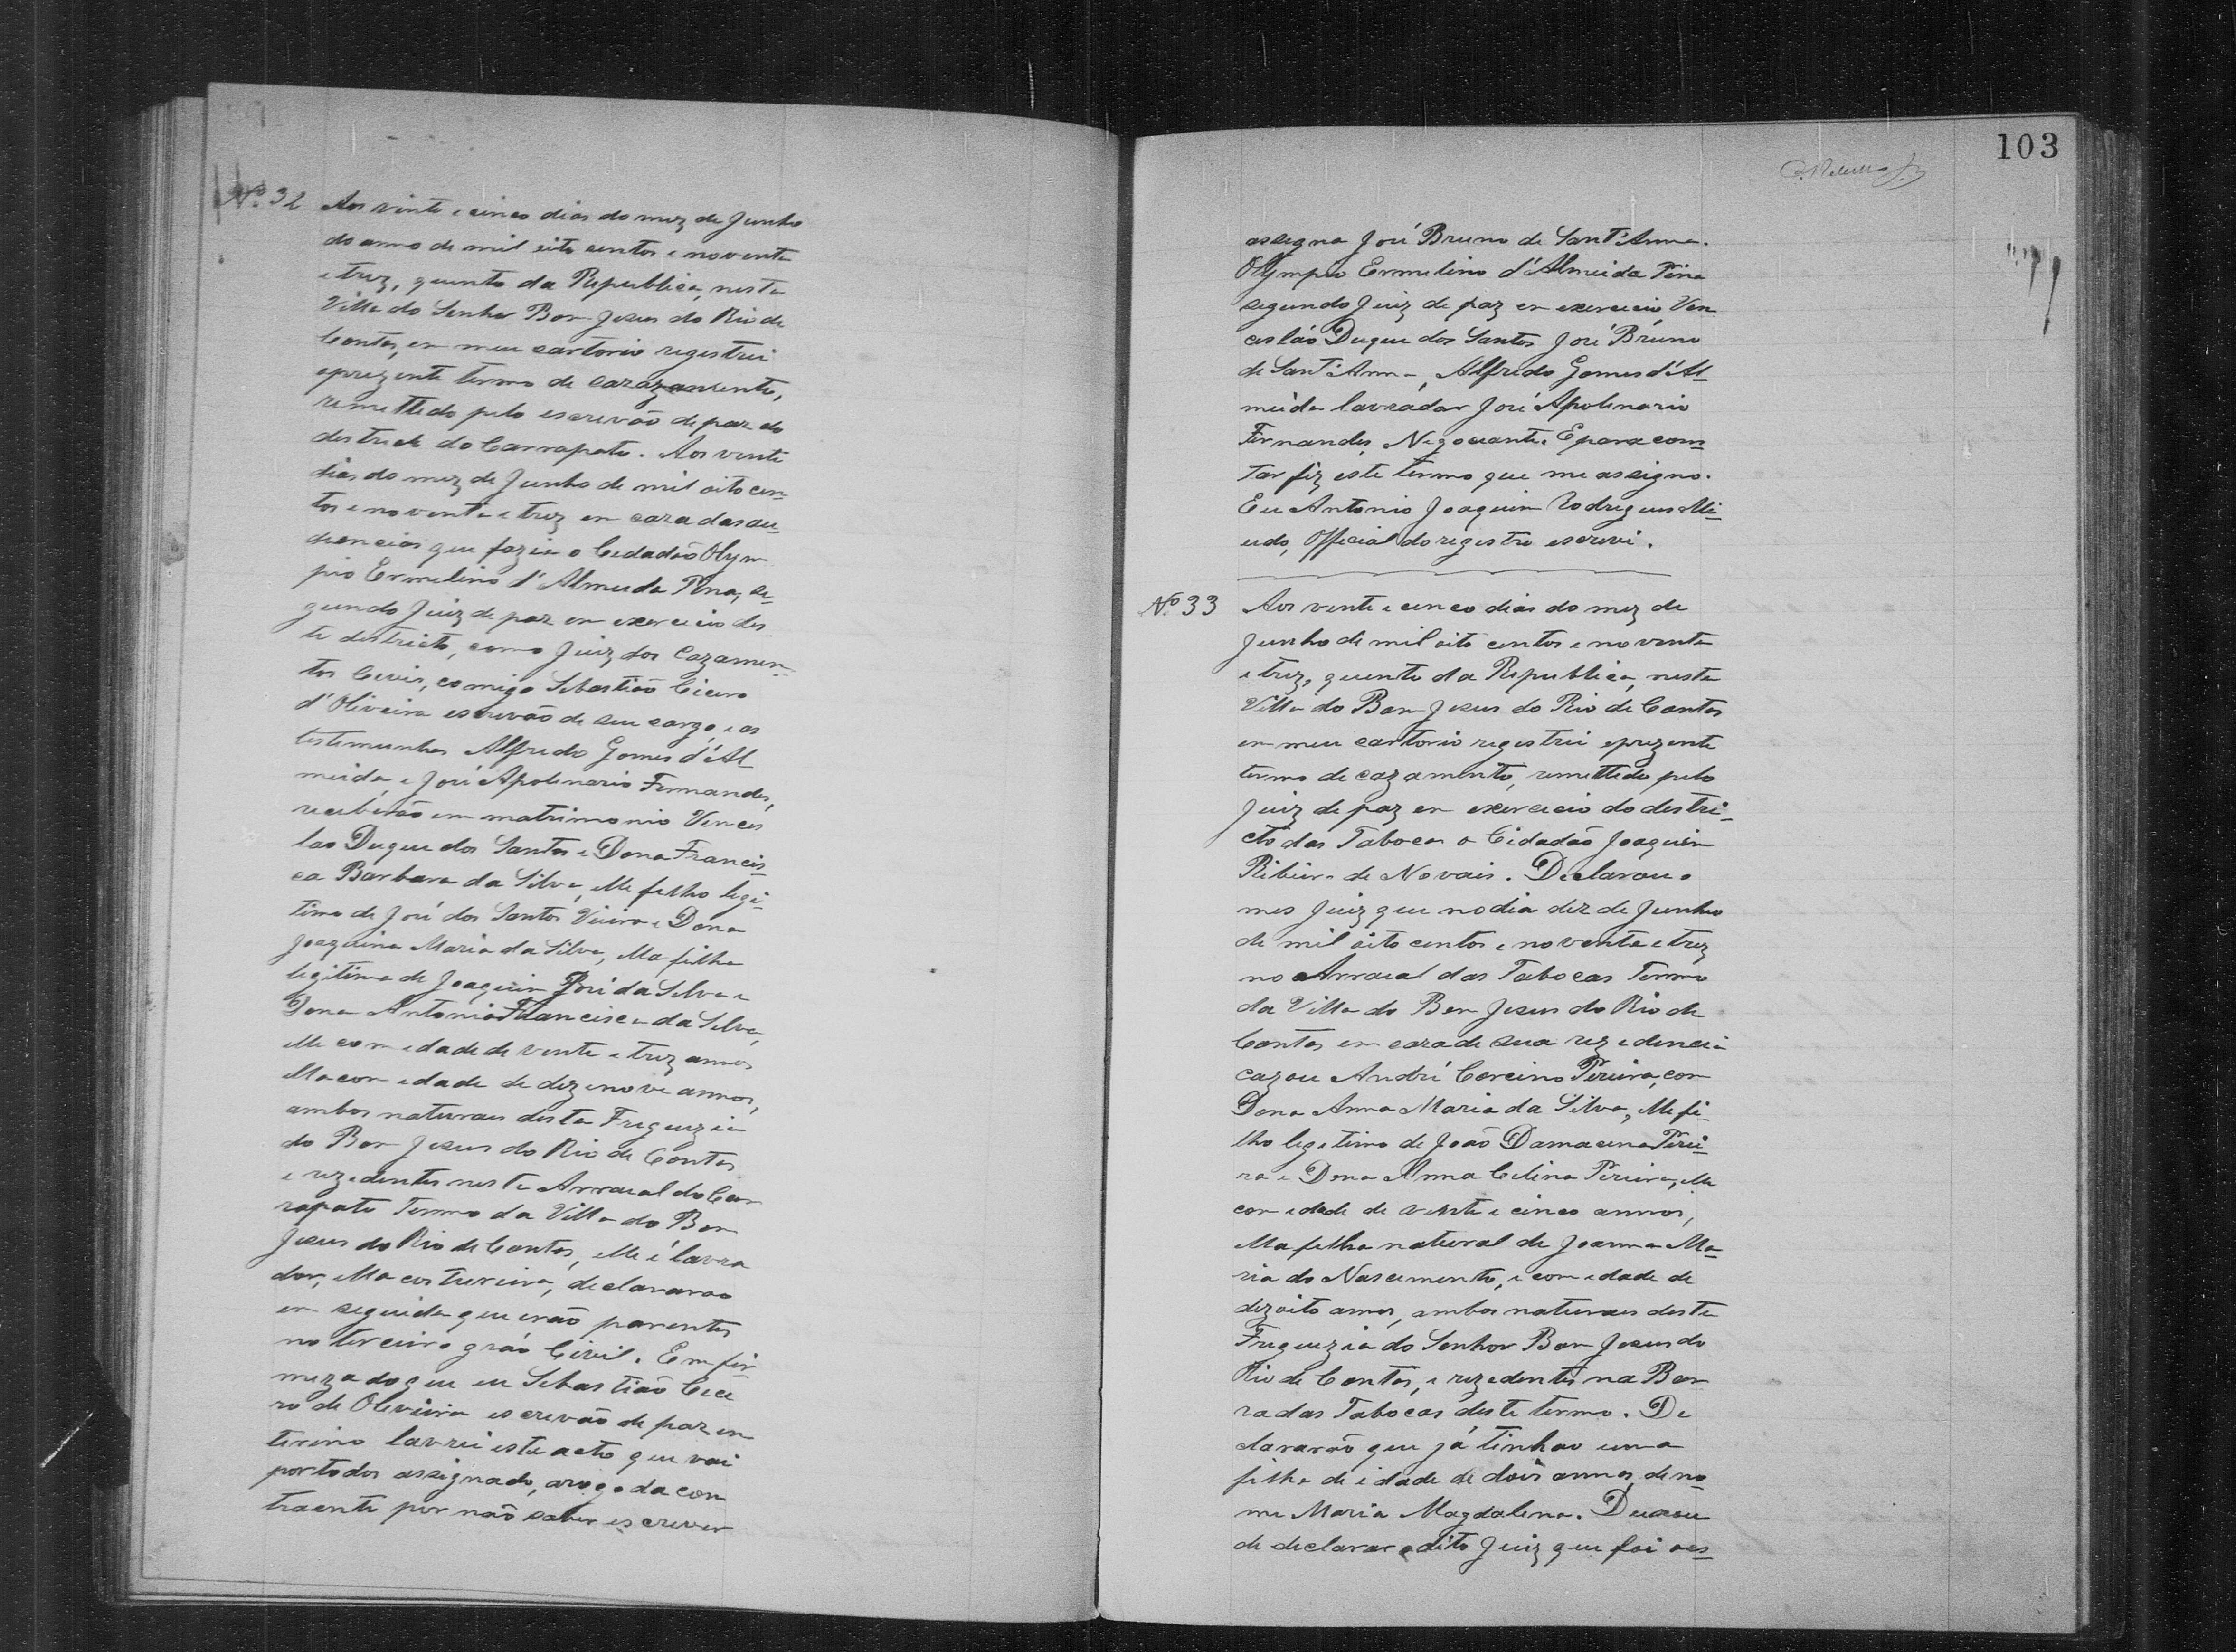 Nº 32 Aos vinte e cinco dias do mez de Junho
do anno de mil oito centos e noventa
e trez, quinto da Republica, nesta
Villa do Senhor Bom Jesus do Rio de
Contas, em meu cartorio registrei
oprezente termo de cazazamento,
remettido pelo escrevão de paz do
destricto do Carrapato. Aos vinte
dias do mez de Junho de mil oito cen-
tos e noventa e trez em caza das au-
diencias que fazia o Cidadão Olym
pio Ermelino d'Almeida Pina, se-
gundo Juiz de paz em exercicio des
te districto, como Juiz dos Cazamen-
tos Civis, comigo Sebastião Cicero
d'Oliveira escrevão de seu cargo, e as
testemunhas Alfredo Gomes d'Al
meida, e José Apolinario Fernandes,
receberão em matrimonio Vences
lao Duque dos Santos e Dona Francis-
ca Barbara da Silva, elle filho legi-
timo de José dos Santos Vieira e Dona
Joaquina Maria da Silva, ella filha
legitima de Joaquim José da Silva e
Dona Antonia Francisca da Silva,
elle com edade de vinte e trez annos
ella com edade de dezenove annos,
ambos naturaes desta Freguezia
do Bom Jesus do Rio de Contas
e rezedentes neste Arraial do Car
rapato Termo da Villa do Bom
Jesus do Rio de Contas, elle é lavra
dor, ella costureira, declararão
em seguida que erão parentes
no terceiro gráo Civil. Em fir
meza do que eu Sebastião Cice
ro de Oliveira escrevão de paz in
terino lavrei este acto que vai
por todos assignado, arogo da con
traente por não saber escrever
103
assigna José Bruno de Sant'Anna.
Olympio Ermelino d'Almeida Pina
segundo Juiz de paz em exercicio Ven
ceslão Duque dos Santos José Bruno
de Sant'Anna, Alfredo Gomes d'Al-
meida lavrador José Apolinario
Fernandes, Negociante. E para cons
tar fiz este termo que me assigno.
Eu Antonio Joaquim Rodrigues Mi-
udo, Official do registro escrevi.
Nº 33 Aos vinte e cinco dias do mez de
Junho de mil oito centos e noventa
e trez, quinto da Republica, nesta
Villa do Bom Jesus do Rio de Contas
em meu cartorio registrei oprezente
termo de cazamento, remettido pelo
Juiz de paz em exercicio do destri-
cto das Tabocas o Cidadão Joaquim
Ribeiro de Novais. Declarou o
mes Juiz que no dia dez de Junho
de mil oito centos e noventa e trez
no Arraial das Tabocas Termo
da Villa do Bom Jesus do Rio de
Contas em caza de sua rezedencia
cazou André Corcino Pereira, com
Dona Anna Maria da Silva, elle fi
lho legetimo de João Damacena Perei-
ra e Dona Anna Celina Pereira, elle
com edade de vinte e cinco annos,
ella filha natural de Joanna Ma-
ria do Nascimento, e com edade de
dezoito annos, ambos naturaes desta
Freguezia do Senhor Bom Jesus do
Rio de Contas, e rezedentes na Bar
ra das Tabocas deste termo. De
clararão que já tinhão uma
filha de idade de dois annos, de no-
me Maria Magdalena. Deixou
de declarar o dito Juiz que foi as-